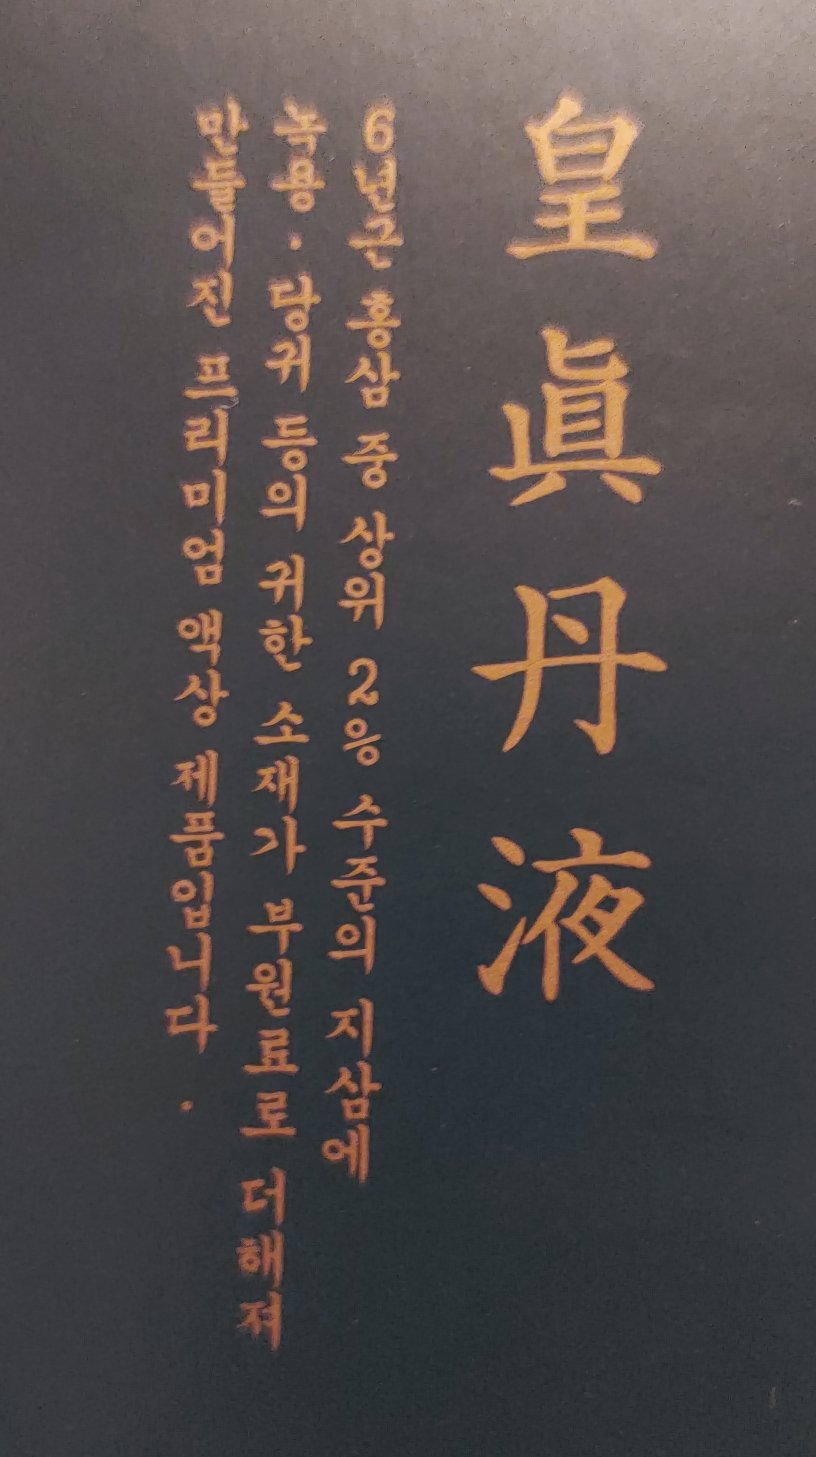 皇眞丹液
6년근 홍삼 중 상위 2응 수준의 지삼에
녹용·당귀 등의 귀한 소재가 부원료로 더해져
만들어진 프리미엄 액상 제품입니다.